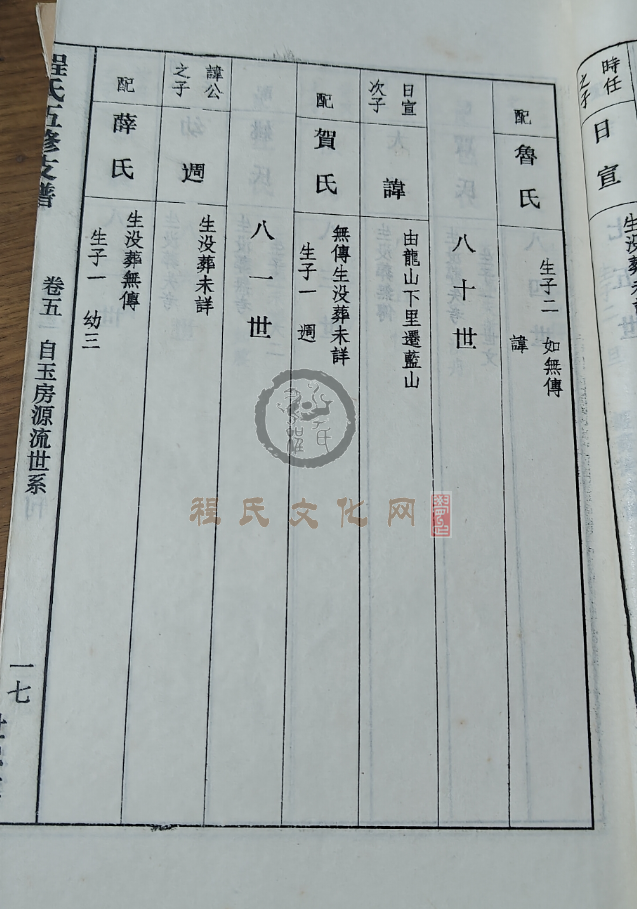 時任
之子
日宣
配
魯氏
生子二 如無傳
諱
八十世
日宣
次子
諱
由龍山下里遷藍山
配
賀氏
無傳生没葬未詳
生子一 週
八一世
諱公
之子
週
生没葬未詳
配
薛氏
生没葬無傳
生子一 幼三
程氏五修支譜
卷五
自玉房源流世系
一七
程氏文化网